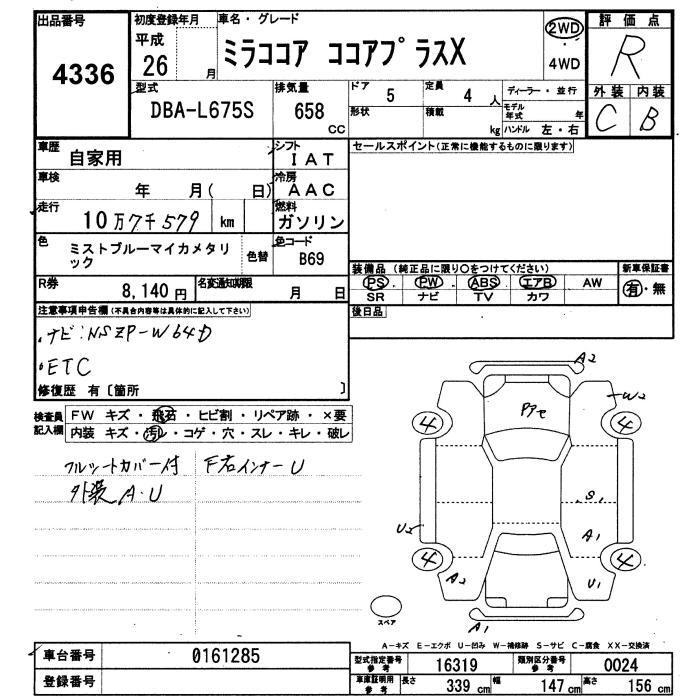 出品番号
4336
初度登録年月
平成
26 月
車名・グレード
ミラココア ココアプラスX
2WD
・
4WD
評価点
R
外装 内装
C B
型式
DBA-L675S
排気量
658
CC
ドア
5
定員
4 人
形状
積載
kg
ディーラー・並行
モデル年式 年
ハンドル 左・右
車歴
自家用
シフト
IAT
車検
年 月( 日)
冷房
AAC
走行
10万7千579 km
燃料
ガソリン
色
ミストブルーマイカメタリック
色替
色コード
B69
R券
8,140 円
名変通知期限
月 日
セールスポイント(正常に機能するものに限ります)
装備品 (純正品に限り○をつけてください)
PS・ PW・ ABS・ エアB・ AW
SR ナビ TV カワ
新車保証書
有・無
後日品
注意事項申告欄(不具合内容等は具体的に記入して下さい)
・ナビ:NSZP-W64D
・ETC
修復歴 有〔箇所 〕
検査員記入欄
FW キズ・飛石・ヒビ割・リペア跡・×要
内装 キズ・汚レ・コゲ・穴・スレ・キレ・破レ
フルシートカバー付 F右インナーU
外装 A・U
A2
W2
4
4
Pアセ
S1
A1
U2
4
4
A2
U1
スペア
A1
A-キズ E-エクボ U-凹み W-補修跡 S-サビ C-腐食 XX-交換済
車台番号 0161285
登録番号
型式指定番号 参考 16319
類別区分番号 参考 0024
車庫証明用 参考
長さ 339 cm
幅 147 cm
高さ 156 cm